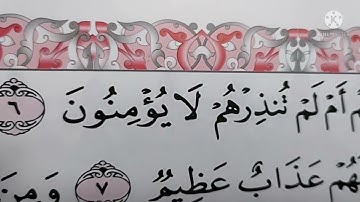 أَمْ لَمْ تُنذِرْهُمْ لَا يُؤْمِنُونَ ٦
عَذَابٌ عَظِيمٌ ٧ وَمِنَ